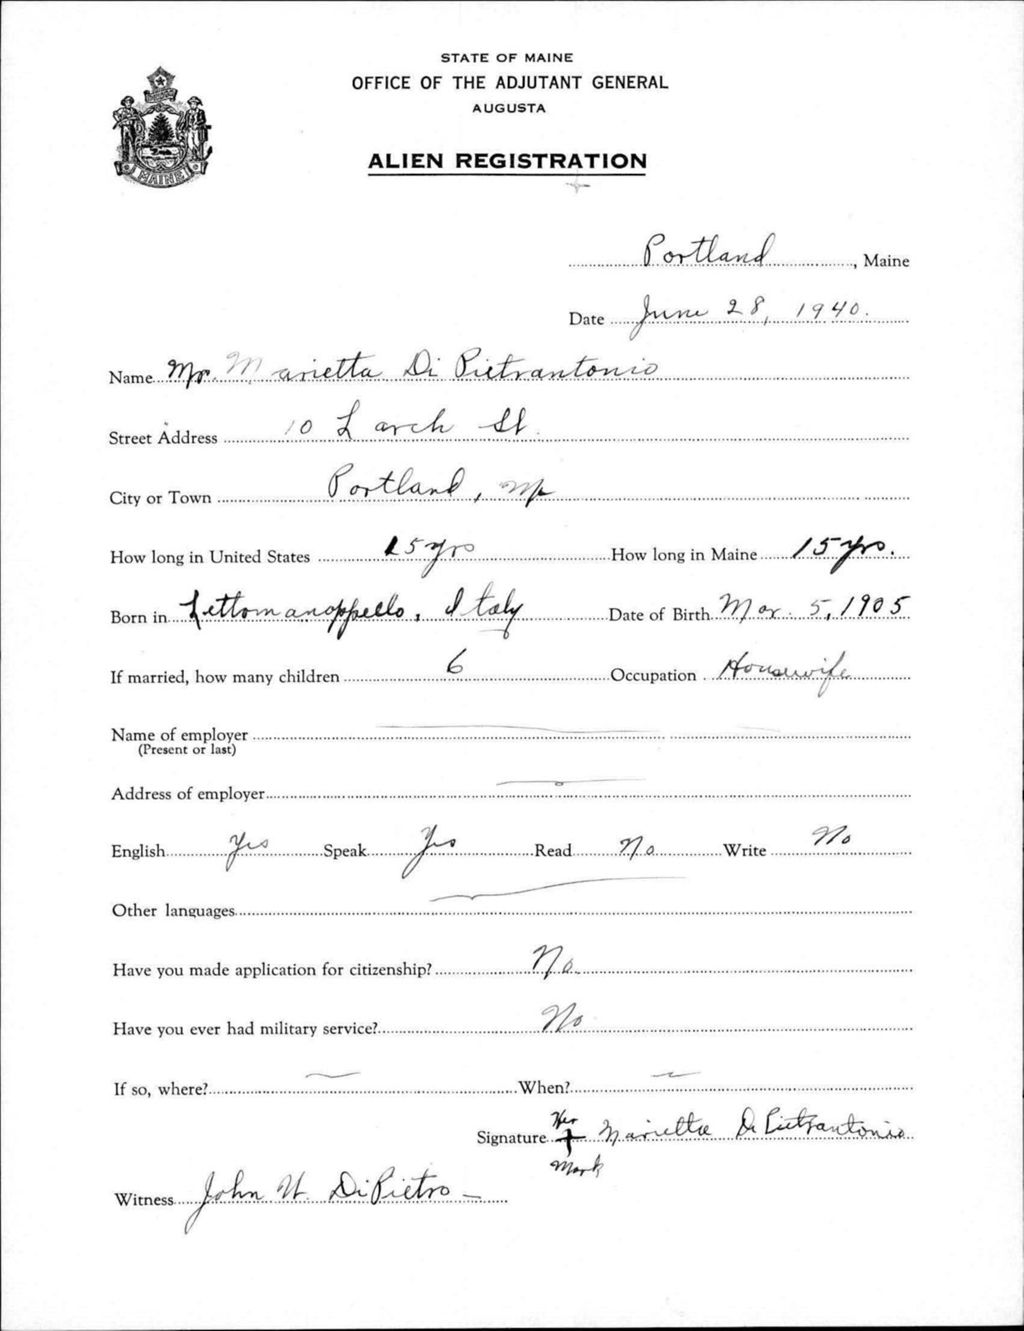 STATE OF MAINE
OFFICE OF THE ADJUTANT GENERAL
AUGUSTA
ALIEN REGISTRATION
MAINE
Portland, Maine
Date June 28, 1940.
Name Mr. Marietta Di Pietrantonio
Street Address 10 Larch St.
City or Town Portland, Me
How long in United States 15 yrs How long in Maine 15 yrs.
Born in Lettomanoppello, Italy Date of Birth Mar. 5, 1905
If married, how many children 6 Occupation Housewife
Name of employer
(Present or last)
Address of employer
English Yes Speak Yes Read No Write No
Other languages
Have you made application for citizenship? No
Have you ever had military service? No
If so, where? When?
Her
Signature + Marietta Di Pietrantonio
Mark
Witness John W. DiPietro